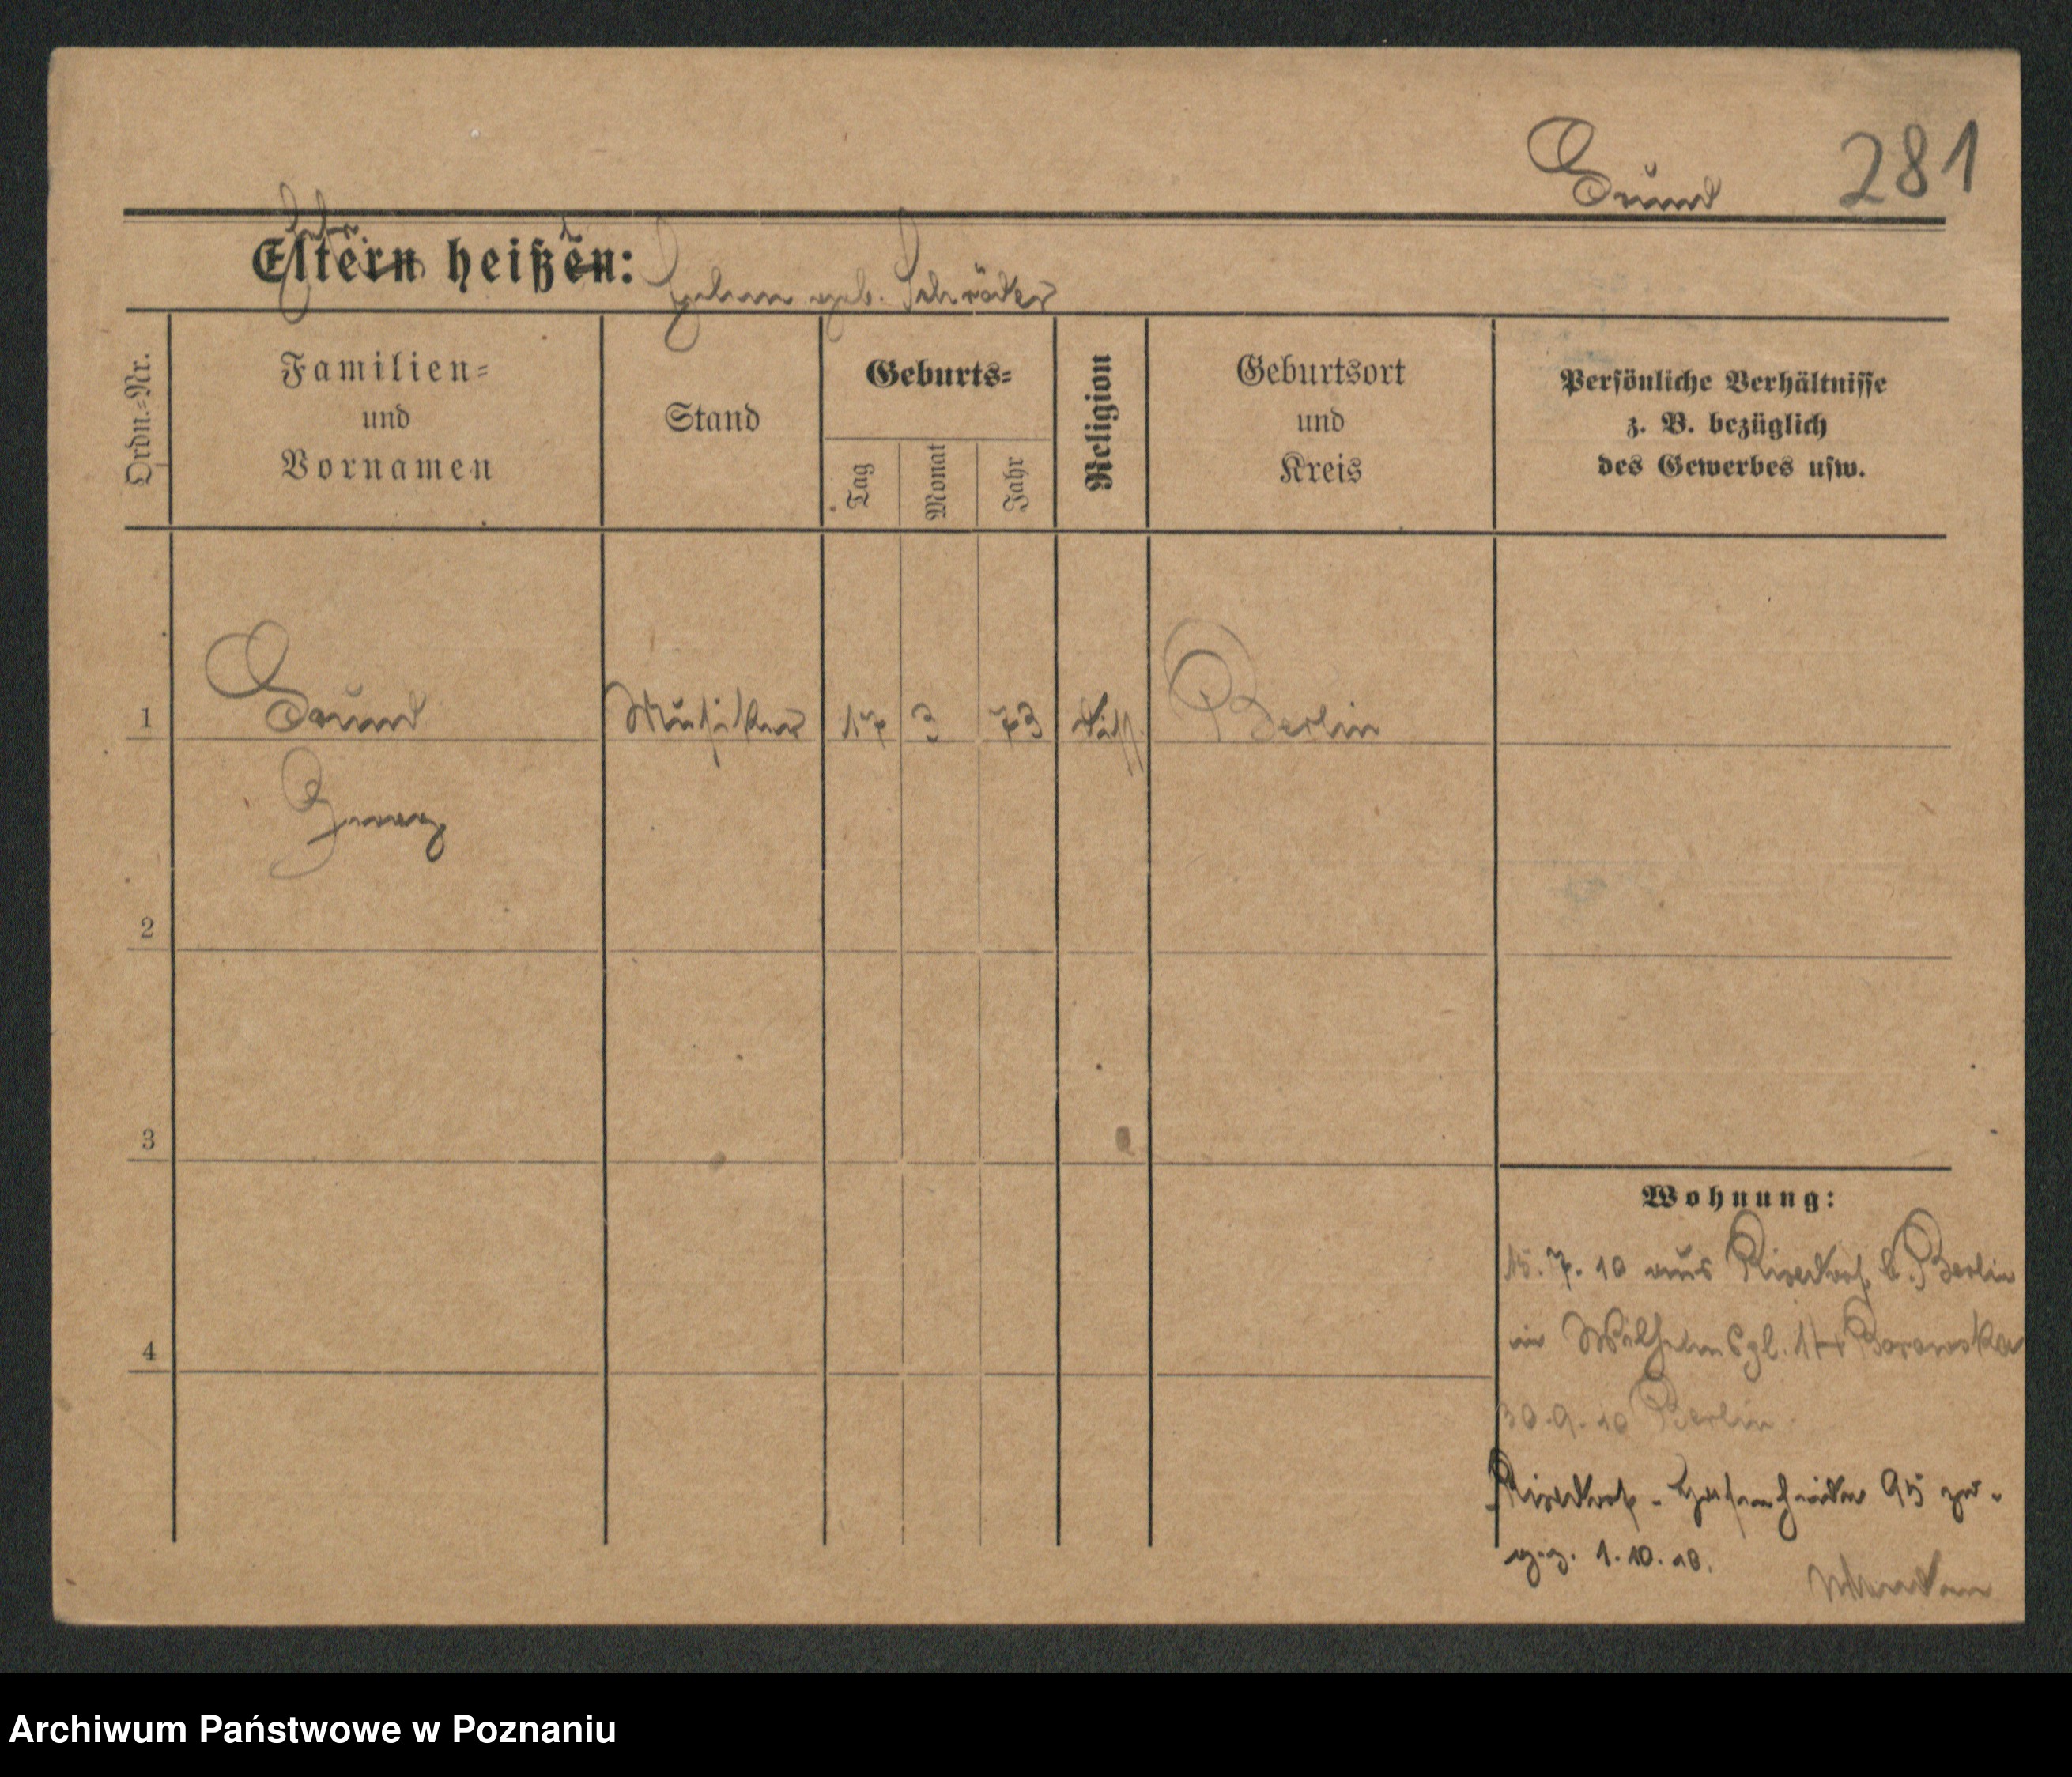 Grund 281
Eltern heißen: geb. Schröder
Ordn.-Nr.
Familien-
und
Vornamen
Stand
Geburts-
Tag
Monat
Jahr
Religion
Geburtsort
und
Kreis
Persönliche Verhältnisse
z. B. bezüglich
des Gewerbes usw.
1 Grund Musiker 17 3 73 diss. Berlin
2
3
4
Wohnung:
15.7.10 aus Rixdorf b. Berlin
Wilhelmspl. 14 Borowska
30.9.10 Berlin
Rixdorf - Hasenheide 95 zu-
1.10.10.
Archiwum Państwowe w Poznaniu